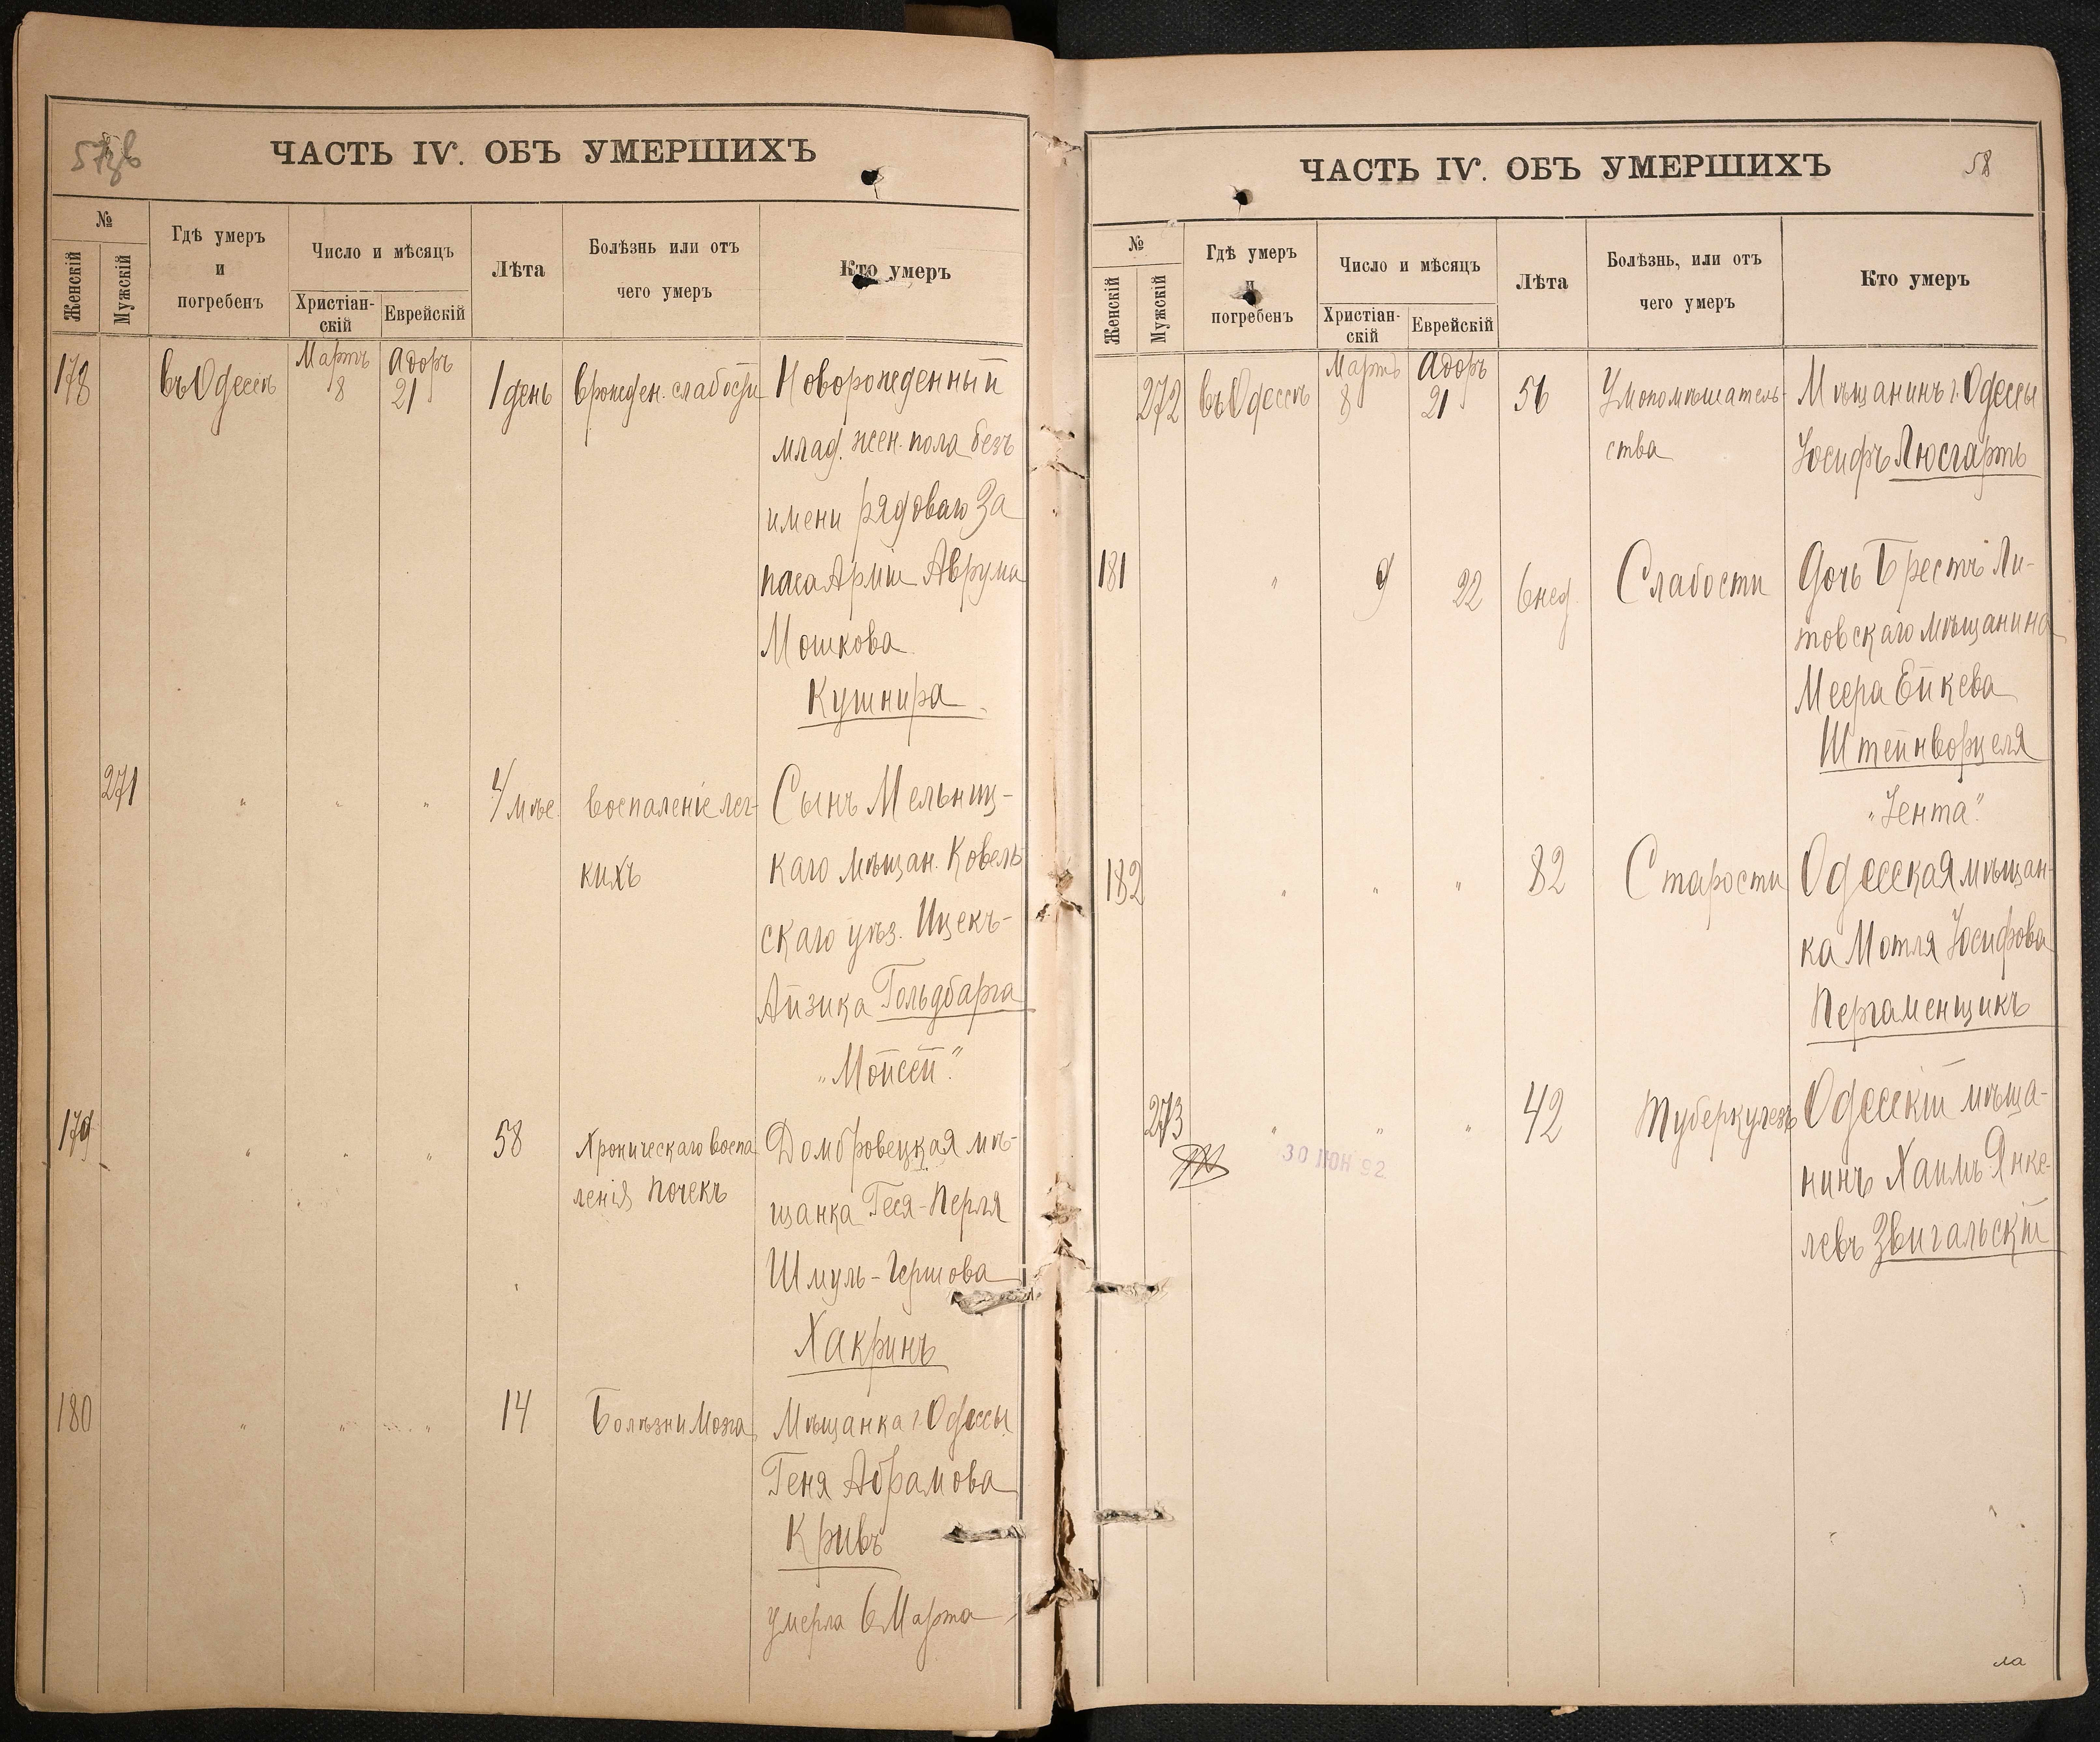 57об
ЧАСТЬ IV. ОБЪ УМЕРШИХЪ
№
Женскій
Мужскій
Гдѣ умеръ
и
погребенъ
Число и мѣсяцъ
Христіан-
скій
Еврейскій
Лѣта
Болѣзнь или отъ
чего умеръ
Кто умеръ
178 въ Одессѣ Мартъ 8 Адоръ 21 1 день врожден. слабости Новорожденный
млад. жен. пола безъ
имени рядоваго За
паса Арміи Аврума
Мошкова
Кушнира
271 " " " 4 мѣс. воспаленіе лег- Сынъ Мельниц-
кихъ каго мѣщан. Ковель
скаго уѣз. Ицекъ-
Айзика Гольдбарга
„Мойсей"
179 " " " 58 Хроническаго воспа Домбровецкая мѣ-
ленія почекъ щанка Геся-Перля
Шмуль-Гершова
Хакринъ
180 " " " 14 Болѣзни Мозга Мѣщанка г. Одессы
Геня Абрамова
Кривъ
умерла 6 Марта
58
ЧАСТЬ IV. ОБЪ УМЕРШИХЪ
№
Женскій
Мужскій
Гдѣ умеръ
и
погребенъ
Число и мѣсяцъ
Христіан-
скій
Еврейскій
Лѣта
Болѣзнь, или отъ
чего умеръ
Кто умеръ
272 въ Одессѣ Мартъ 8 Адоръ 21 56 Умопомѣшатель- Мѣщанинъ г. Одессы
ства Іосифъ Люсгартъ
181 " 9 22 6 нед. Слабости Дочь Брестъ Ли-
товскаго мѣщанина
Меера Ейкева
Штейнворцеля
„Зента"
182 " " " 82 Старости Одесская мѣщан-
ка Мотля Іосифова
Пергаменщикъ
273 " " " 42 Туберкулезъ Одесскій мѣща-
30 ІЮН 92
нинъ Хаимъ Янке-
левъ Звигальскій
ла